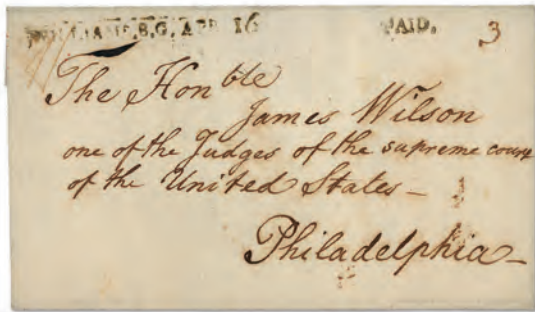 WILLIAMS.B.G, APR 16 PAID. 3
The Honble
James Wilson
one of the Judges of the supreme court
of the United States —
Philadelphia —